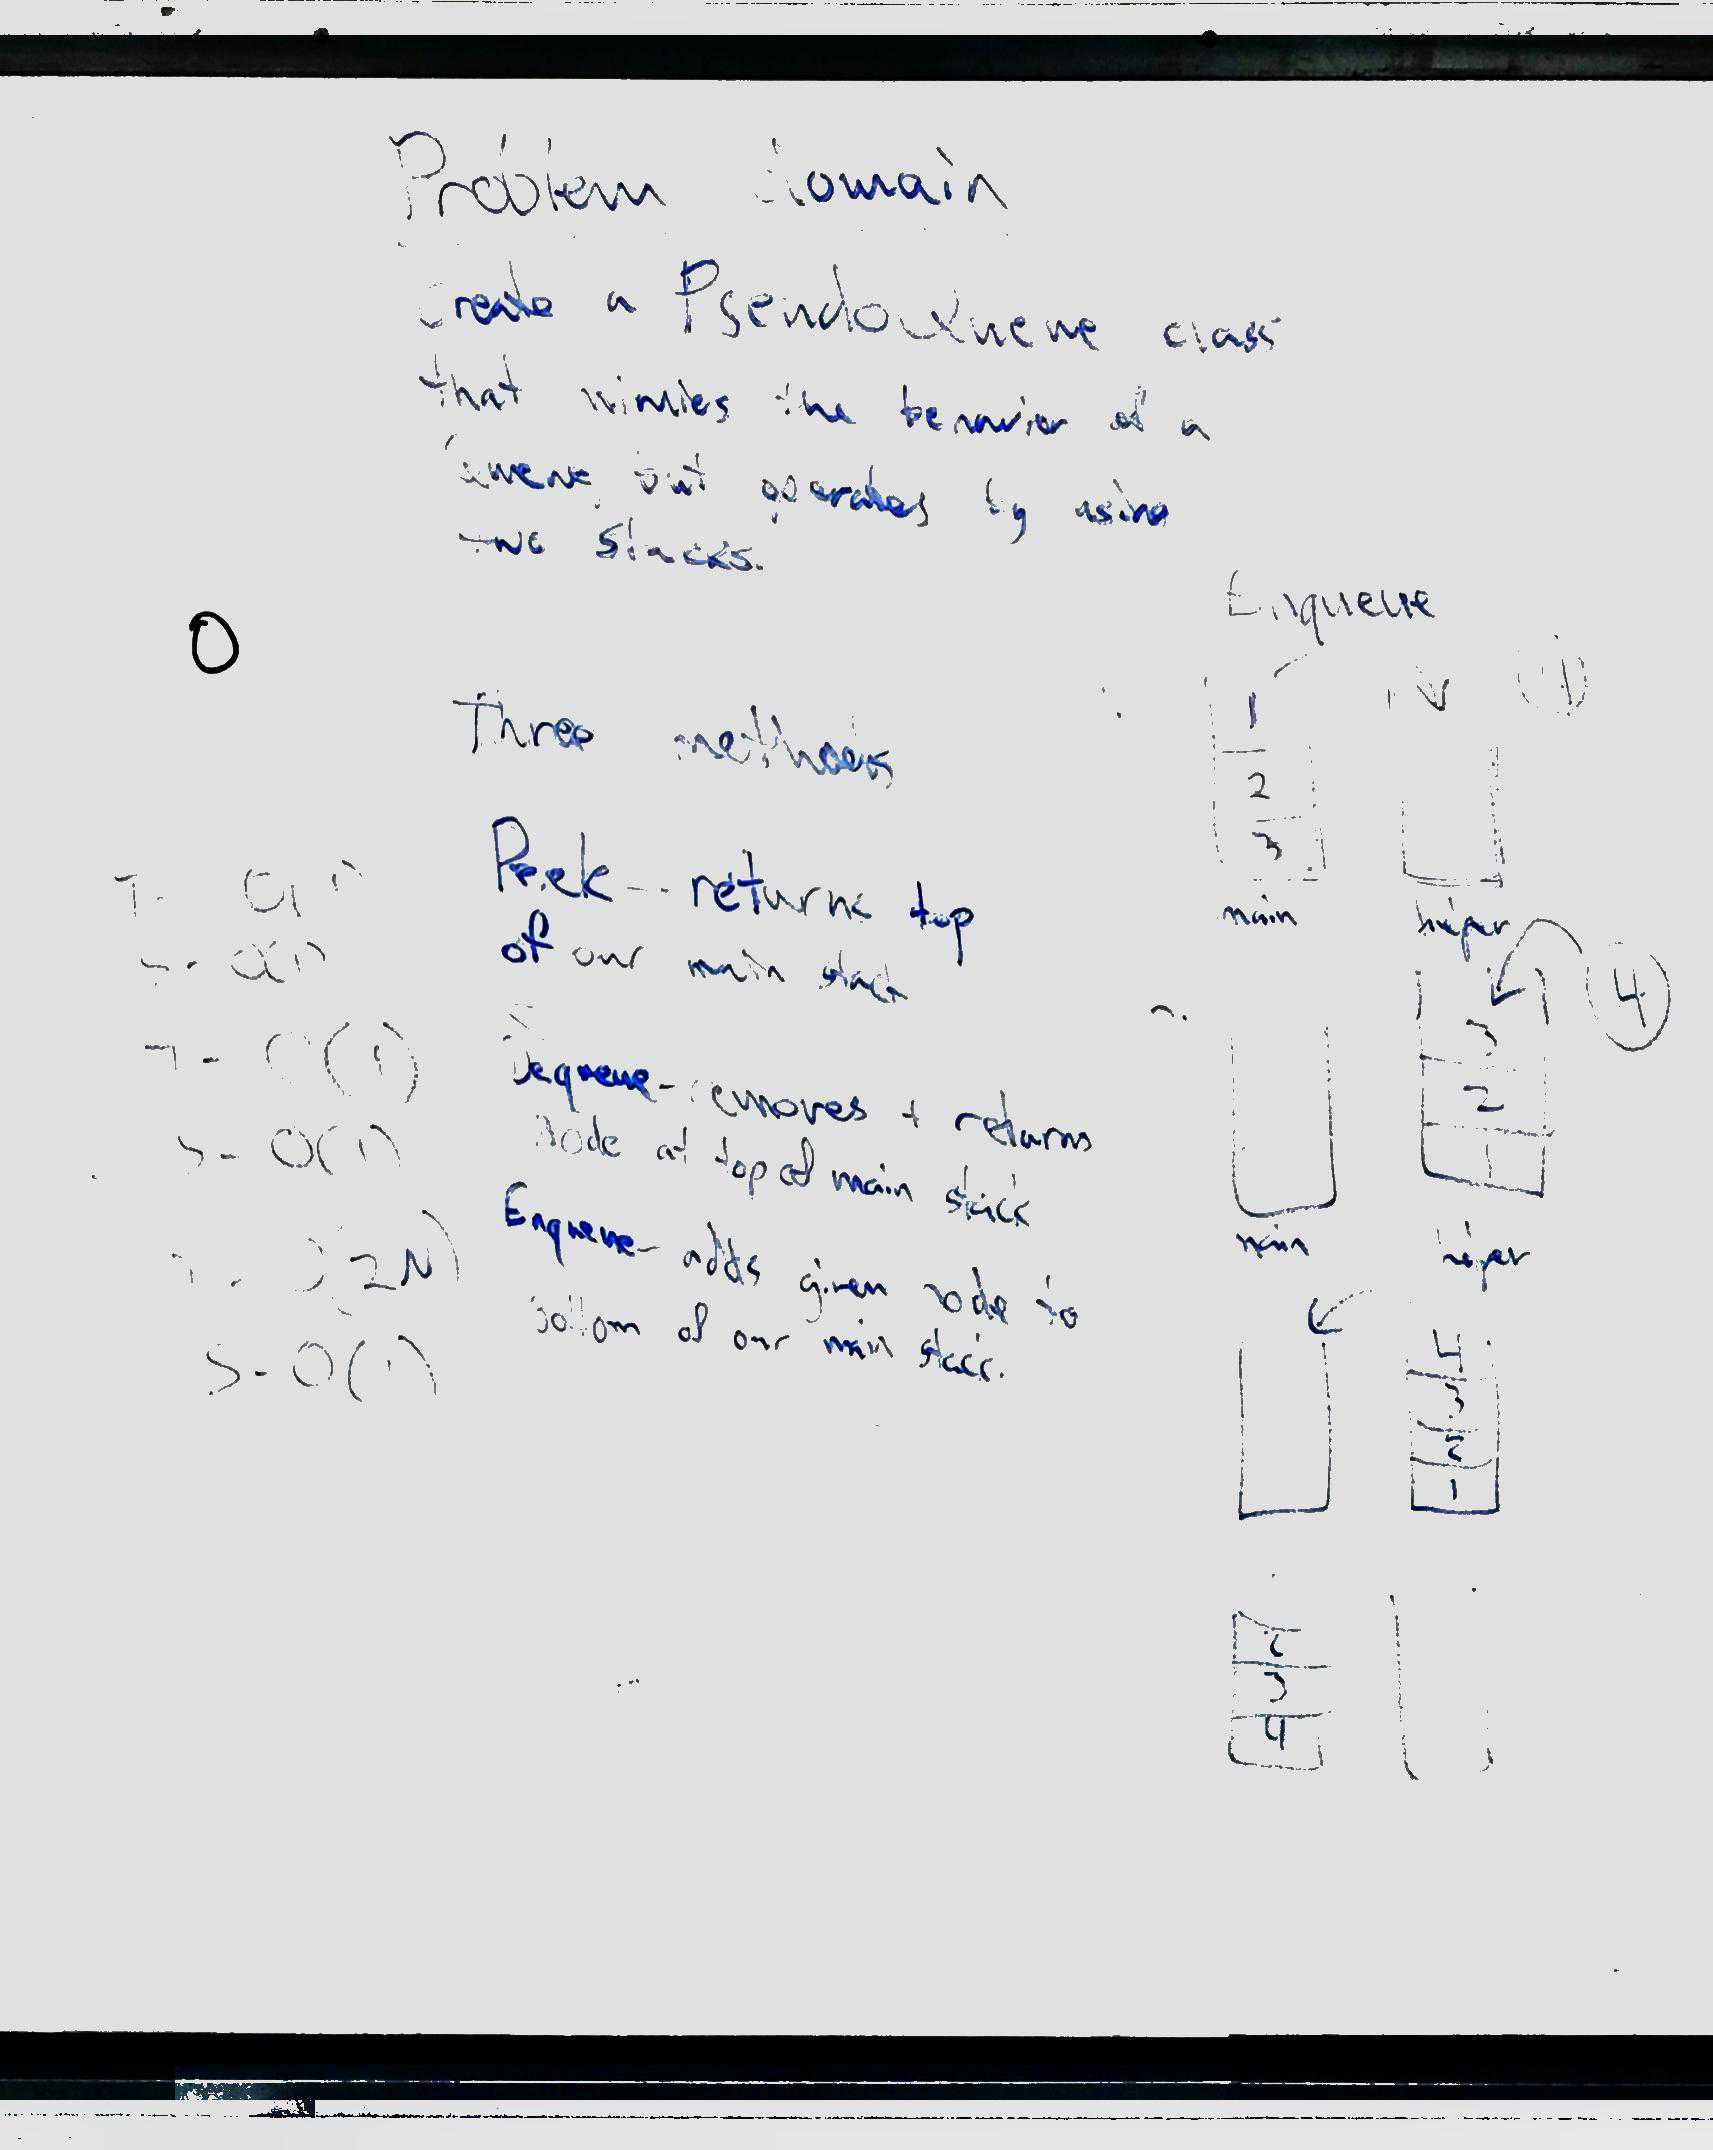 Problem Domain
Create a PseudoQueue class
that mimics the behavior of a
Queue, but operates by using
two stacks.
O
Three methods
Peek - returns top
of our main stack
T- O(1)
S- O(1)
Dequeue - removes + returns
Node at top of main stack
T- O(1)
S- O(1)
Enqueue - adds given node to
bottom of our main stack.
T- O(2N)
S- O(1)
Enqueue
1
2
3
main
helper
4
3
2
1
main
helper
4
3
2
1
2
3
4